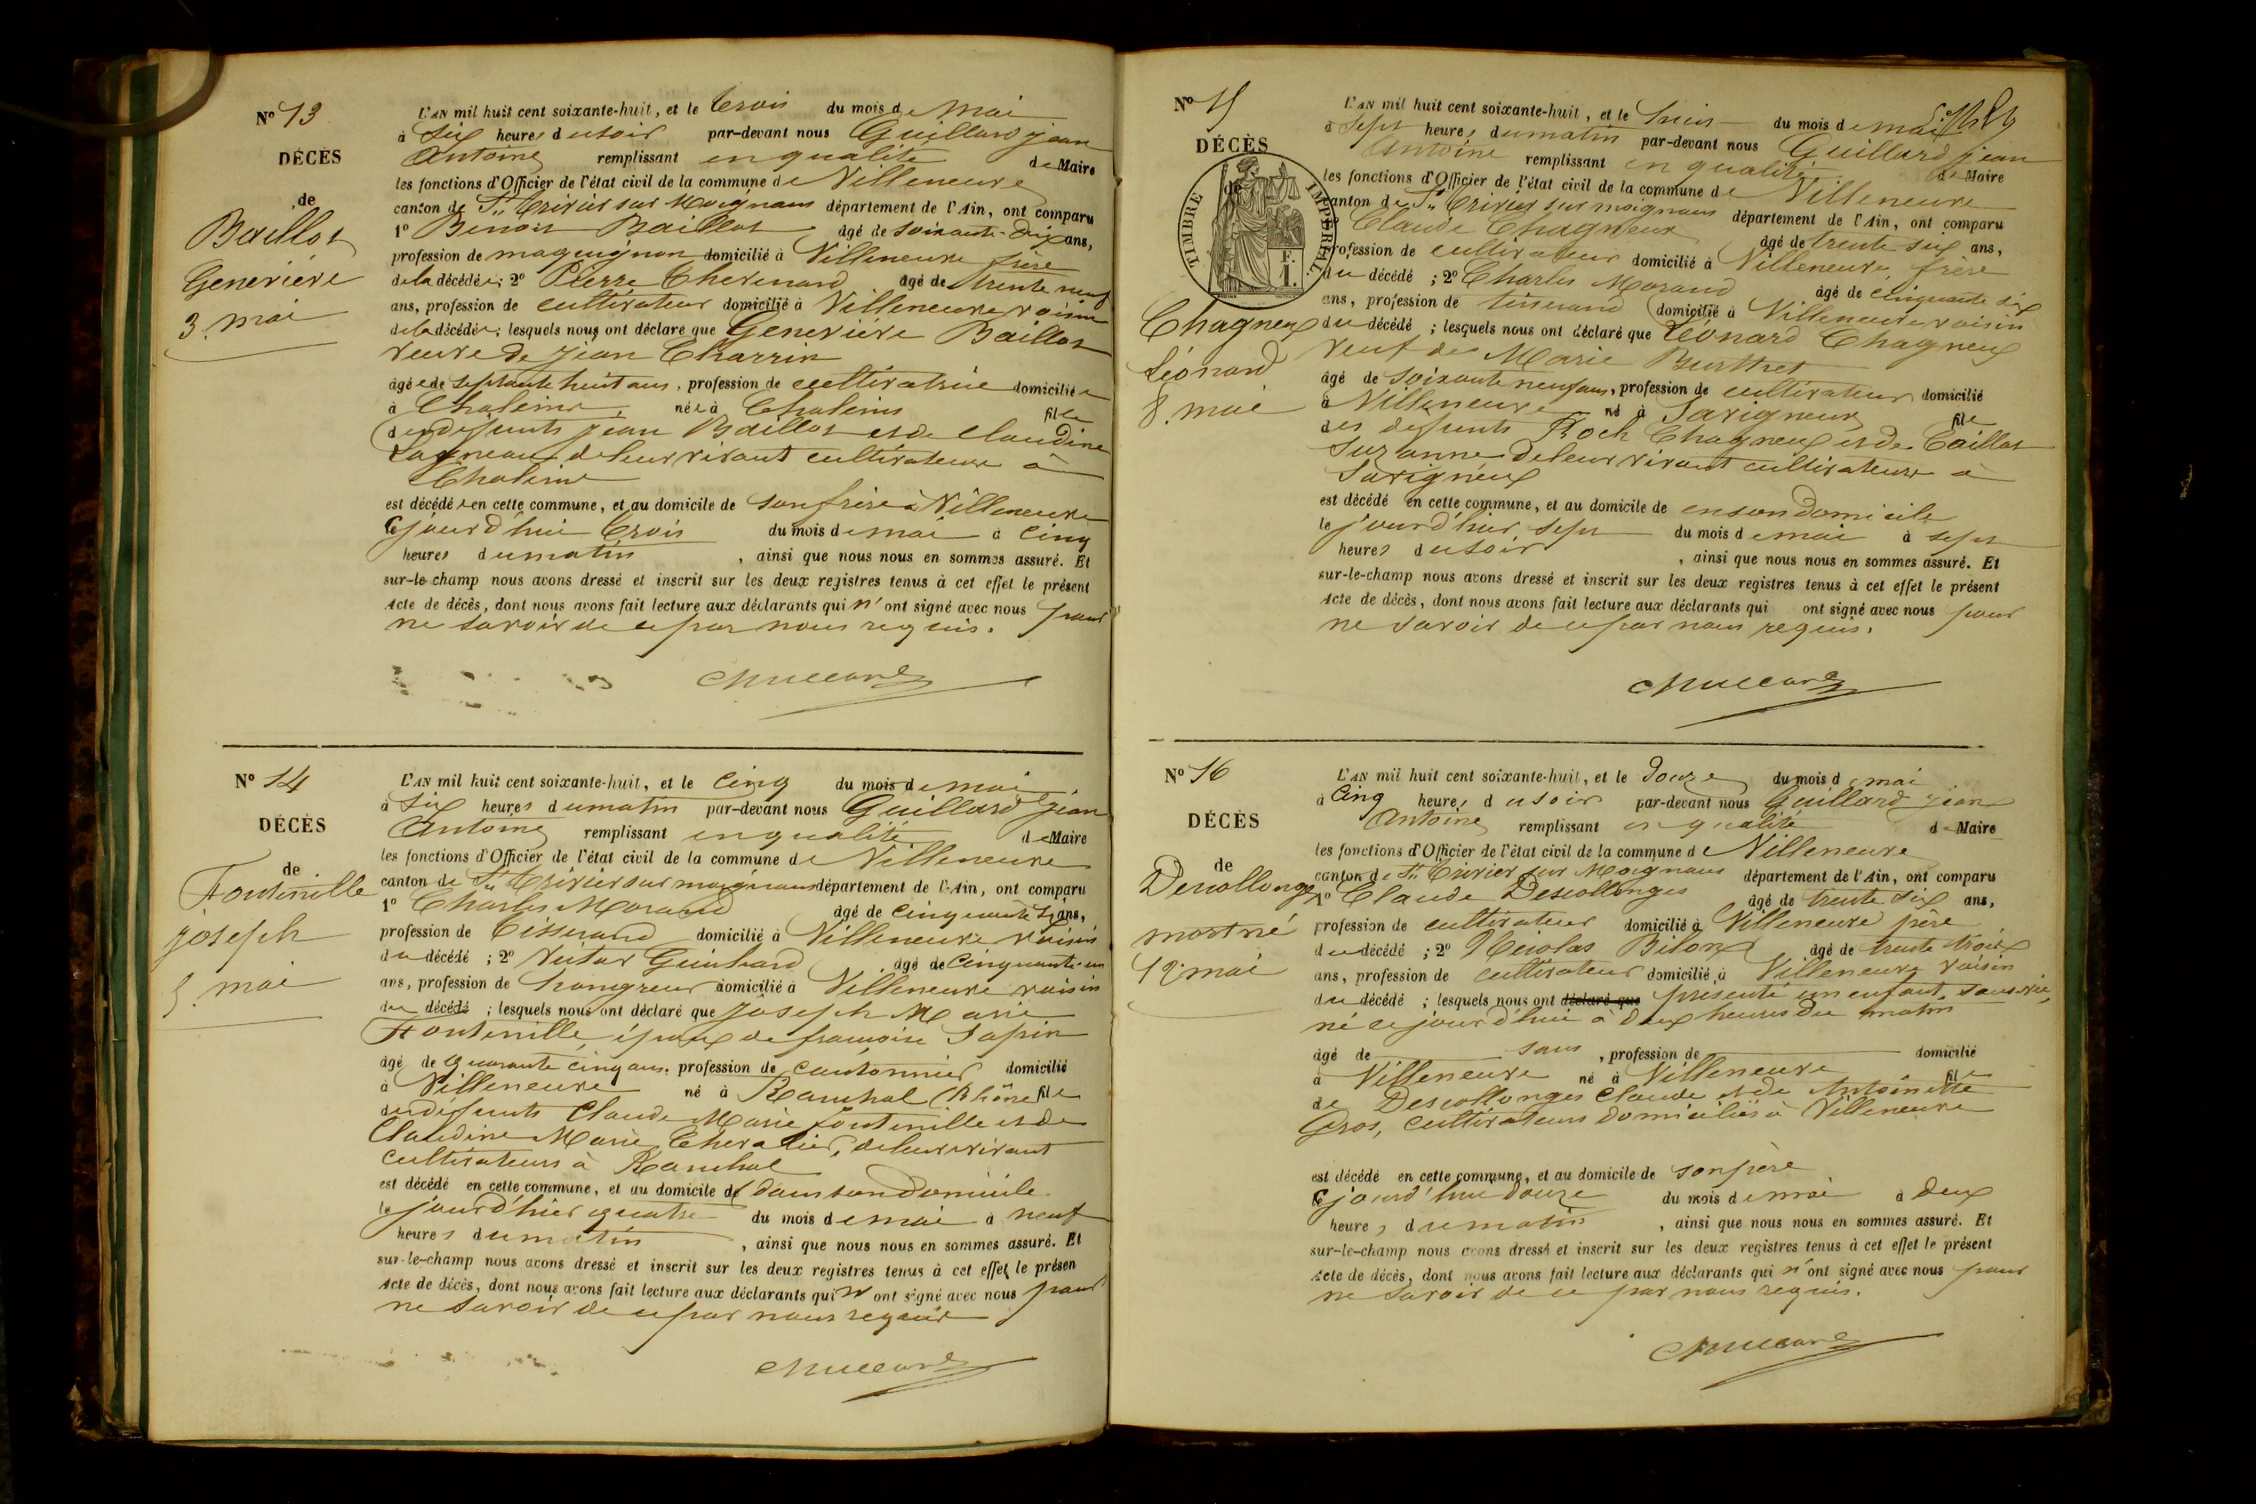 N° 13
DÉCÈS
de
Baillot
Geneviève
3. mai
L'AN mil huit cent soixante-huit, et le trois du mois de Mai
à six heures du soir par-devant nous Guillard jean
Antoine remplissant en qualité de Maire
les fonctions d'Officier de l'état civil de la commune de Villeneuve
canton de St Trivier sur Moignans département de l'Ain, ont comparu
1° Benoit Baillot âgé de soixante-dix ans,
profession de maquignon domicilié à Villeneuve frère
de la décédée; 2° Pierre Chevenard âgé de trente neuf
ans, profession de cultivateur domicilié à Villeneuve voisin
de la décédée; lesquels nous ont déclaré que Geneviève Baillot
veuve de jean Charrin
âgée de septante huit ans, profession de cultivatrice domiciliée
à Chaleins, née à Chaleins fille
des défunts jean Baillot et de Claudine
Lagneau de leur vivant cultivateurs à
Chaleins
est décédée en cette commune, et au domicile de son frère à Villeneuve
Cejourd'hui trois du mois de mai à cinq
heures du matin, ainsi que nous nous en sommes assuré. Et
sur-le-champ nous avons dressé et inscrit sur les deux registres tenus à cet effet le présent
Acte de décès, dont nous avons fait lecture aux déclarants qui n'ont signé avec nous pour
ne savoir de ce par nous requis.
N° 14
DÉCÈS
de
Fontinille
joseph
5. mai
L'AN mil huit cent soixante-huit, et le cinq du mois de mai
à six heures du matin par-devant nous Guillard jean
Antoine remplissant en qualité de Maire
les fonctions d'Officier de l'état civil de la commune de Villeneuve
canton de St Trivier sur moignans département de l'Ain, ont comparu
1° Charles Morand âgé de cinquante six ans,
profession de Tisserand domicilié à Villeneuve voisin
du décédé; 2° Victor Guichard âgé de cinquante un
ans, profession de hongreur domicilié à Villeneuve voisin
du décédé; lesquels nous ont déclaré que joseph Marie
Fontenille, époux de françoise Sapin
âgé de quarante cinq ans, profession de cantonnier domicilié
à Villeneuve né à Ranchal (Rhône fils
des défunts Claude Marie fontinille et de
Claudine Marie Chevalier, de leur vivant
cultivateurs à Ranchal
est décédé en cette commune, et au domicile de dans son domicile
le jour d'hier quatre du mois de mai à neuf
heures du matin, ainsi que nous nous en sommes assuré. Et
sur-le-champ nous avons dressé et inscrit sur les deux registres tenus à cet effet le présen
Acte de décès, dont nous avons fait lecture aux déclarants qui n'ont signé avec nous pour
ne savoir de ce par nous requis
N° 15
DÉCÈS
de
TIMBRE IMPÉRIAL
F.
1.
Chagneux
Léonard
8. mai
L'AN mil huit cent soixante-huit, et le huit du mois de mai
à sept heures du matin par-devant nous Guillard jean
Antoine remplissant en qualité de Maire
les fonctions d'Officier de l'état civil de la commune de Villeneuve
canton de St Trivier sur moignans département de l'Ain, ont comparu
Claude Chagneux âgé de trente six ans,
profession de cultivateur domicilié à Villeneuve, frère
du décédé; 2° Charles Morand âgé de cinquante six
ans, profession de tisserand domicilié à Villeneuve voisin
du décédé; lesquels nous ont déclaré que Léonard Chagneux
veuf de Marie Burthet
âgé de soixante neuf ans, profession de cultivateur domicilié
à Villeneuve né à Savigneux fils
des défunts Roch Chagneux et de Taillat
Suzanne de leur vivant cultivateurs à
Savigneux
est décédé en cette commune, et au domicile de en son domicile
le jour d'hier sept du mois de mai à sept
heures du soir, ainsi que nous nous en sommes assuré. Et
sur-le-champ nous avons dressé et inscrit sur les deux registres tenus à cet effet le présent
Acte de décès, dont nous avons fait lecture aux déclarants qui ont signé avec nous pour
ne savoir de ce par nous requis.
N° 16
DÉCÈS
de
Descollonges
mort né
12. mai
L'AN mil huit cent soixante-huit, et le douze du mois de mai
à cinq heures du soir par-devant nous Guillard jean
Antoine remplissant en qualité de Maire
les fonctions d'Officier de l'état civil de la commune de Villeneuve
canton de St Trivier sur Moignans département de l'Ain, ont comparu
1° Claude Descollonges âgé de trente six ans,
profession de cultivateur domicilié à Villeneuve père
du décédé; 2° Nicolas Bilon âgé de trente trois
ans, profession de cultivateur domicilié à Villeneuve voisin
du décédé; lesquels nous ont déclaré que présenté un enfant, sans vie,
né cejourd'hui à deux heures du matin
âgé de sans, profession de domicilié
à Villeneuve né à Villeneuve fils
de Descollonges Claude et de Antoinette
Gros, cultivateurs domiciliés à Villeneuve
est décédé en cette commune, et au domicile de son père
Cejourd'hui douze du mois de mai à deux
heures du matin, ainsi que nous nous en sommes assuré. Et
sur-le-champ nous avons dressé et inscrit sur les deux registres tenus à cet effet le présent
Acte de décès, dont nous avons fait lecture aux déclarants qui n'ont signé avec nous pour
ne savoir de ce par nous requis.